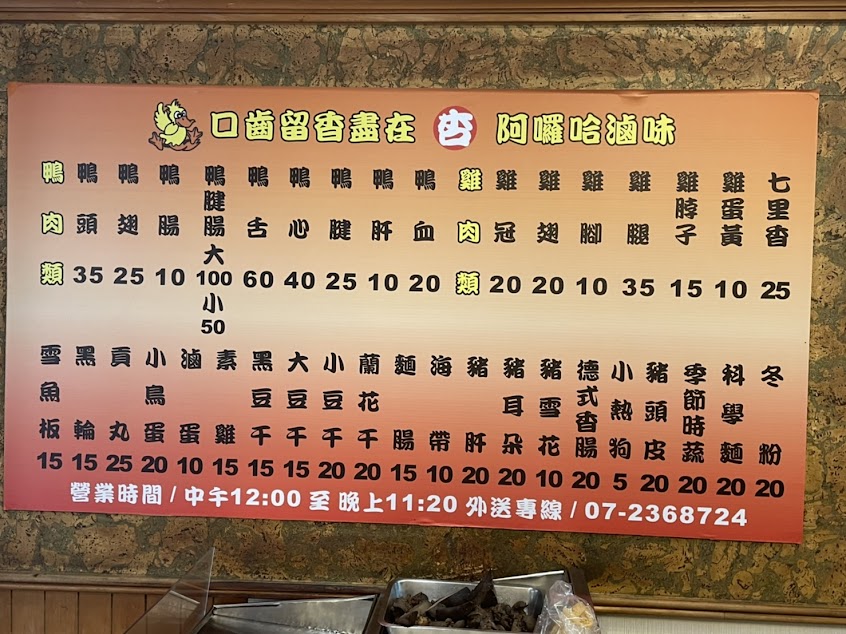 口齒留香盡在 杏 阿囉哈滷味
鴨肉類
鴨頭 35
鴨翅 25
鴨腸 10
鴨腱腸 大100 小50
鴨舌 60
鴨心 40
鴨腱 25
鴨肝 10
鴨血 20
雞肉類
雞冠 20
雞翅 20
雞腳 10
雞腿 35
雞脖子 15
雞蛋黃 10
七里香 25
雪魚板 15
黑輪 15
貢丸 25
小鳥蛋 20
滷蛋 10
素雞 15
黑豆干 15
大豆干 15
小豆干 20
蘭花干 20
麵腸 15
海帶 10
豬肝 20
豬耳朵 20
豬雪花 10
德式香腸 20
小熱狗 5
豬頭皮 20
季節時蔬 20
科學麵 20
冬粉 20
營業時間 / 中午12:00 至 晚上11:20 外送專線 / 07-2368724